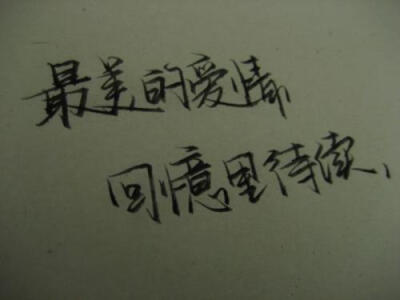 最美的爱情
回憶里待续、